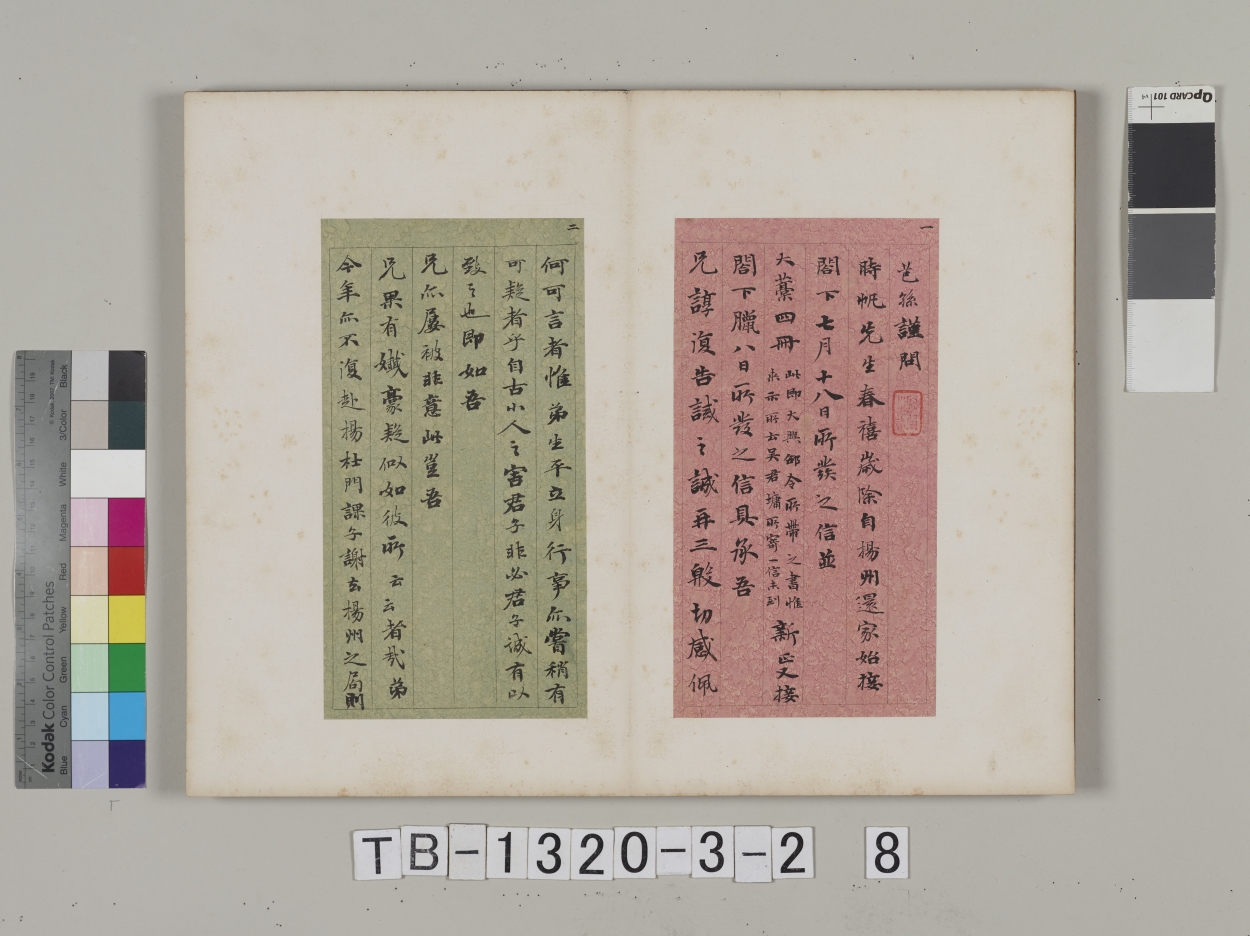 一
芑孫謹問
時帆先生春禧歲除自揚州還家始接
閣下七月十八日所發之信並
大藁四冊此即大興邵令所帶之書惟
來示所云吳君墉所寄一信未到新正又接
閣下臘八日所發之信具承吾
兄諄復告誡之誠再三殷切感佩
二
何可言者惟弟生平立身行事亦嘗稍有
可疑者乎自古小人之害君子非必君子誠有以
致之也即如吾
兄亦屢被非意此豈吾
兄果有孅豪疑似如彼所云云者哉弟
今年亦不復赴揚杜門課子謝去揚州之局則
QPCARD 101
Kodak Color Control Patches
Blue Cyan Green Yellow Red Magenta White 3/Color Black
TB-1320-3-2 8